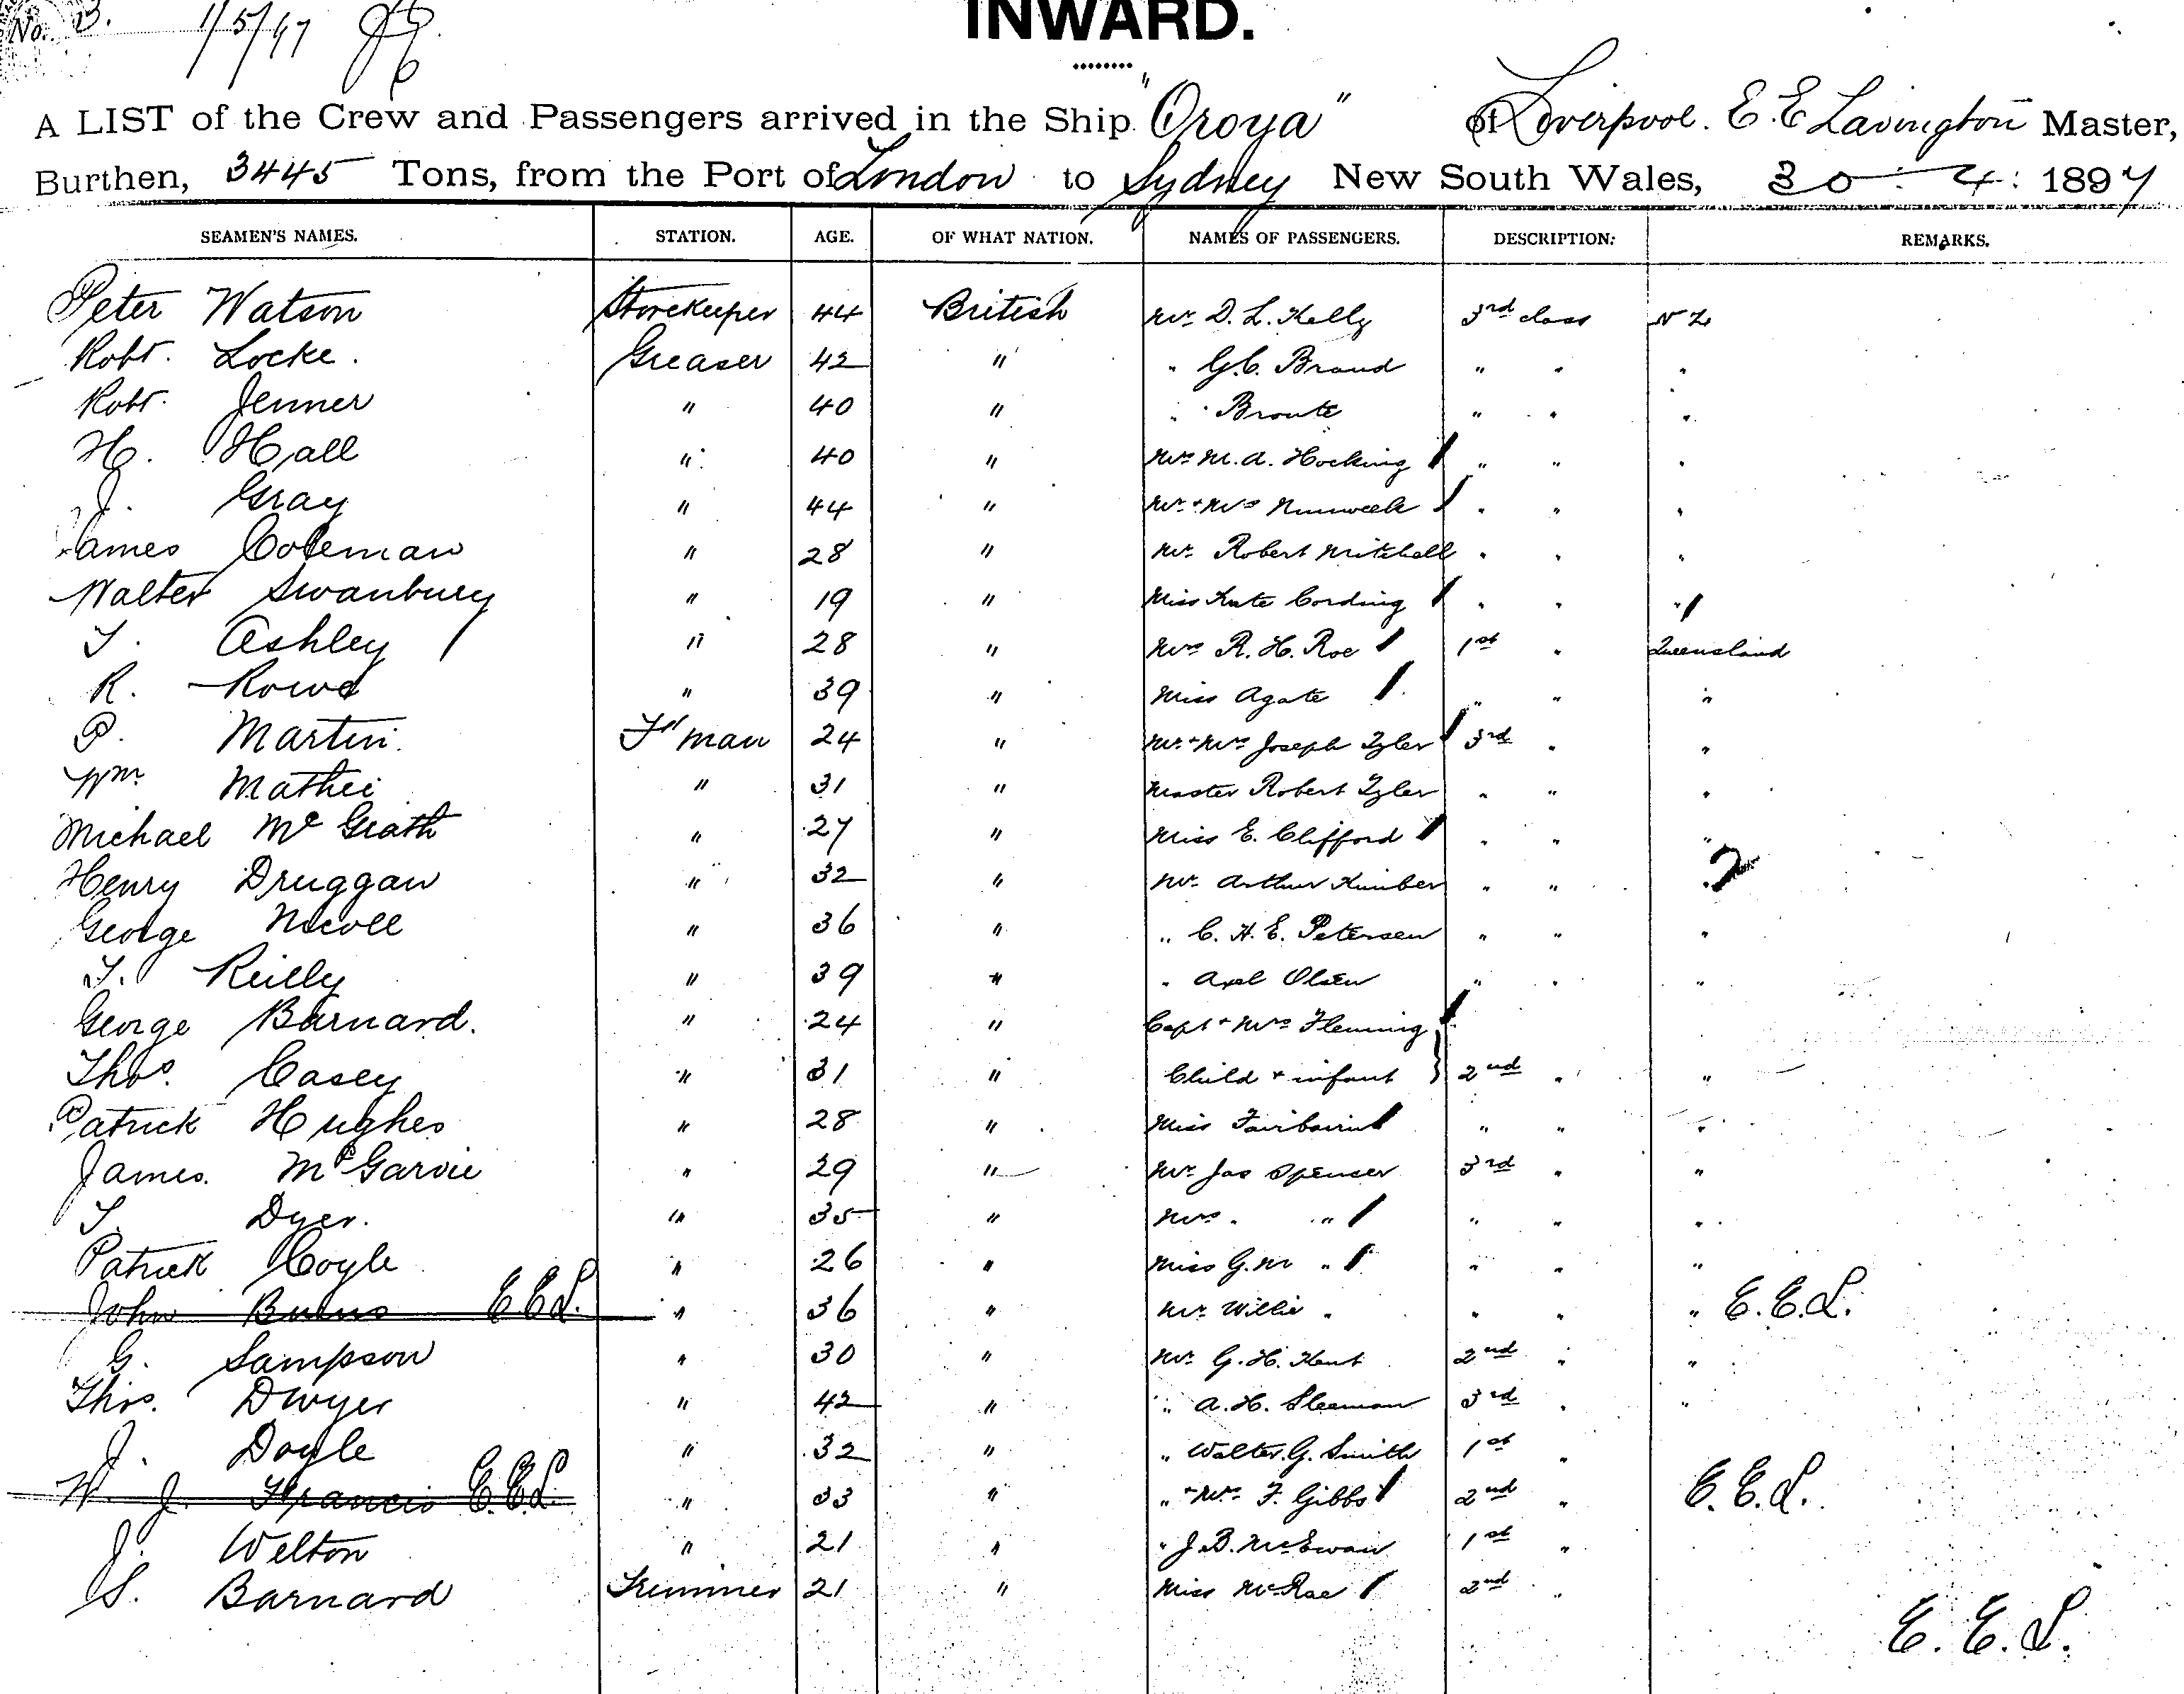 No. 3. 1/5/97
INWARD.
A LIST of the Crew and Passengers arrived in the Ship "Oroya" of Liverpool. E. E Lavington Master,
Burthen, 3445 Tons, from the Port of London to Sydney New South Wales, 30 : 4 : 1897
SEAMEN'S NAMES. STATION. AGE. OF WHAT NATION. NAMES OF PASSENGERS. DESCRIPTION. REMARKS.
Peter Watson Storekeeper 44 British Mr. D. L. Kelly 3rd class N Z
Robt. Locke. Greaser 42 " " G. C. Braud " " "
Robt. Jenner " 40 " " Broute " " "
H. Hall " 40 " Mrs M. A. Hocking " " "
J. Gray " 44 " Mr. + Mrs Nunweek " " "
James Coleman " 28 " Mr. Robert Mitchell " " "
Walter Swanbury " 19 " Miss Kate Cording " " "
T. Ashley " 28 " Mrs R. H. Roe 1st " Queensland
R. Rowe " 39 " Miss Agate " " "
P. Martin. Fman 24 " Mr. + Mrs Joseph Tyler 3rd " "
Wm. Mathei " 31 " Master Robert Tyler " " "
Michael McGrath " 27 " Miss E. Clifford " " "
Henry Druggan " 32 " Mr. Arthur Kimber " " " 2
George Nicoll " 36 " " C. H. E. Petersen " " "
T. Reilly " 39 " " Axel Olsen " " "
George Barnard. " 24 " Capt + Mrs Fleming
Thos. Casey " 31 " Child + infant } 2nd " "
Patrick Hughes " 28 " Miss Fairbairn " " "
James. McGarvie " 29 " Mr. Jas Spencer 3rd " "
T. Dyer. " 35 " Mrs. " " " "
Patrick Coyle " 26 " Miss G. M " " " "
John Burns E E L. " 36 " Mr. Willie " " " " E. E. L.
G. Sampson " 30 " Mr. G. H. Kent 2nd " "
Thos. Dwyer " 42 " " A. H. Sleeman 3rd " "
J. Doyle " 32 " " Walter. G. Smith 1st "
W. J. Francis E. E. L. " 33 " " + Mrs F. Gibbs 2nd " E. E. L.
J. Welton " 21 " " J. B. McEwan 1st "
S. Barnard Trimmer 21 " Miss McRae 2nd "
E. E. L.